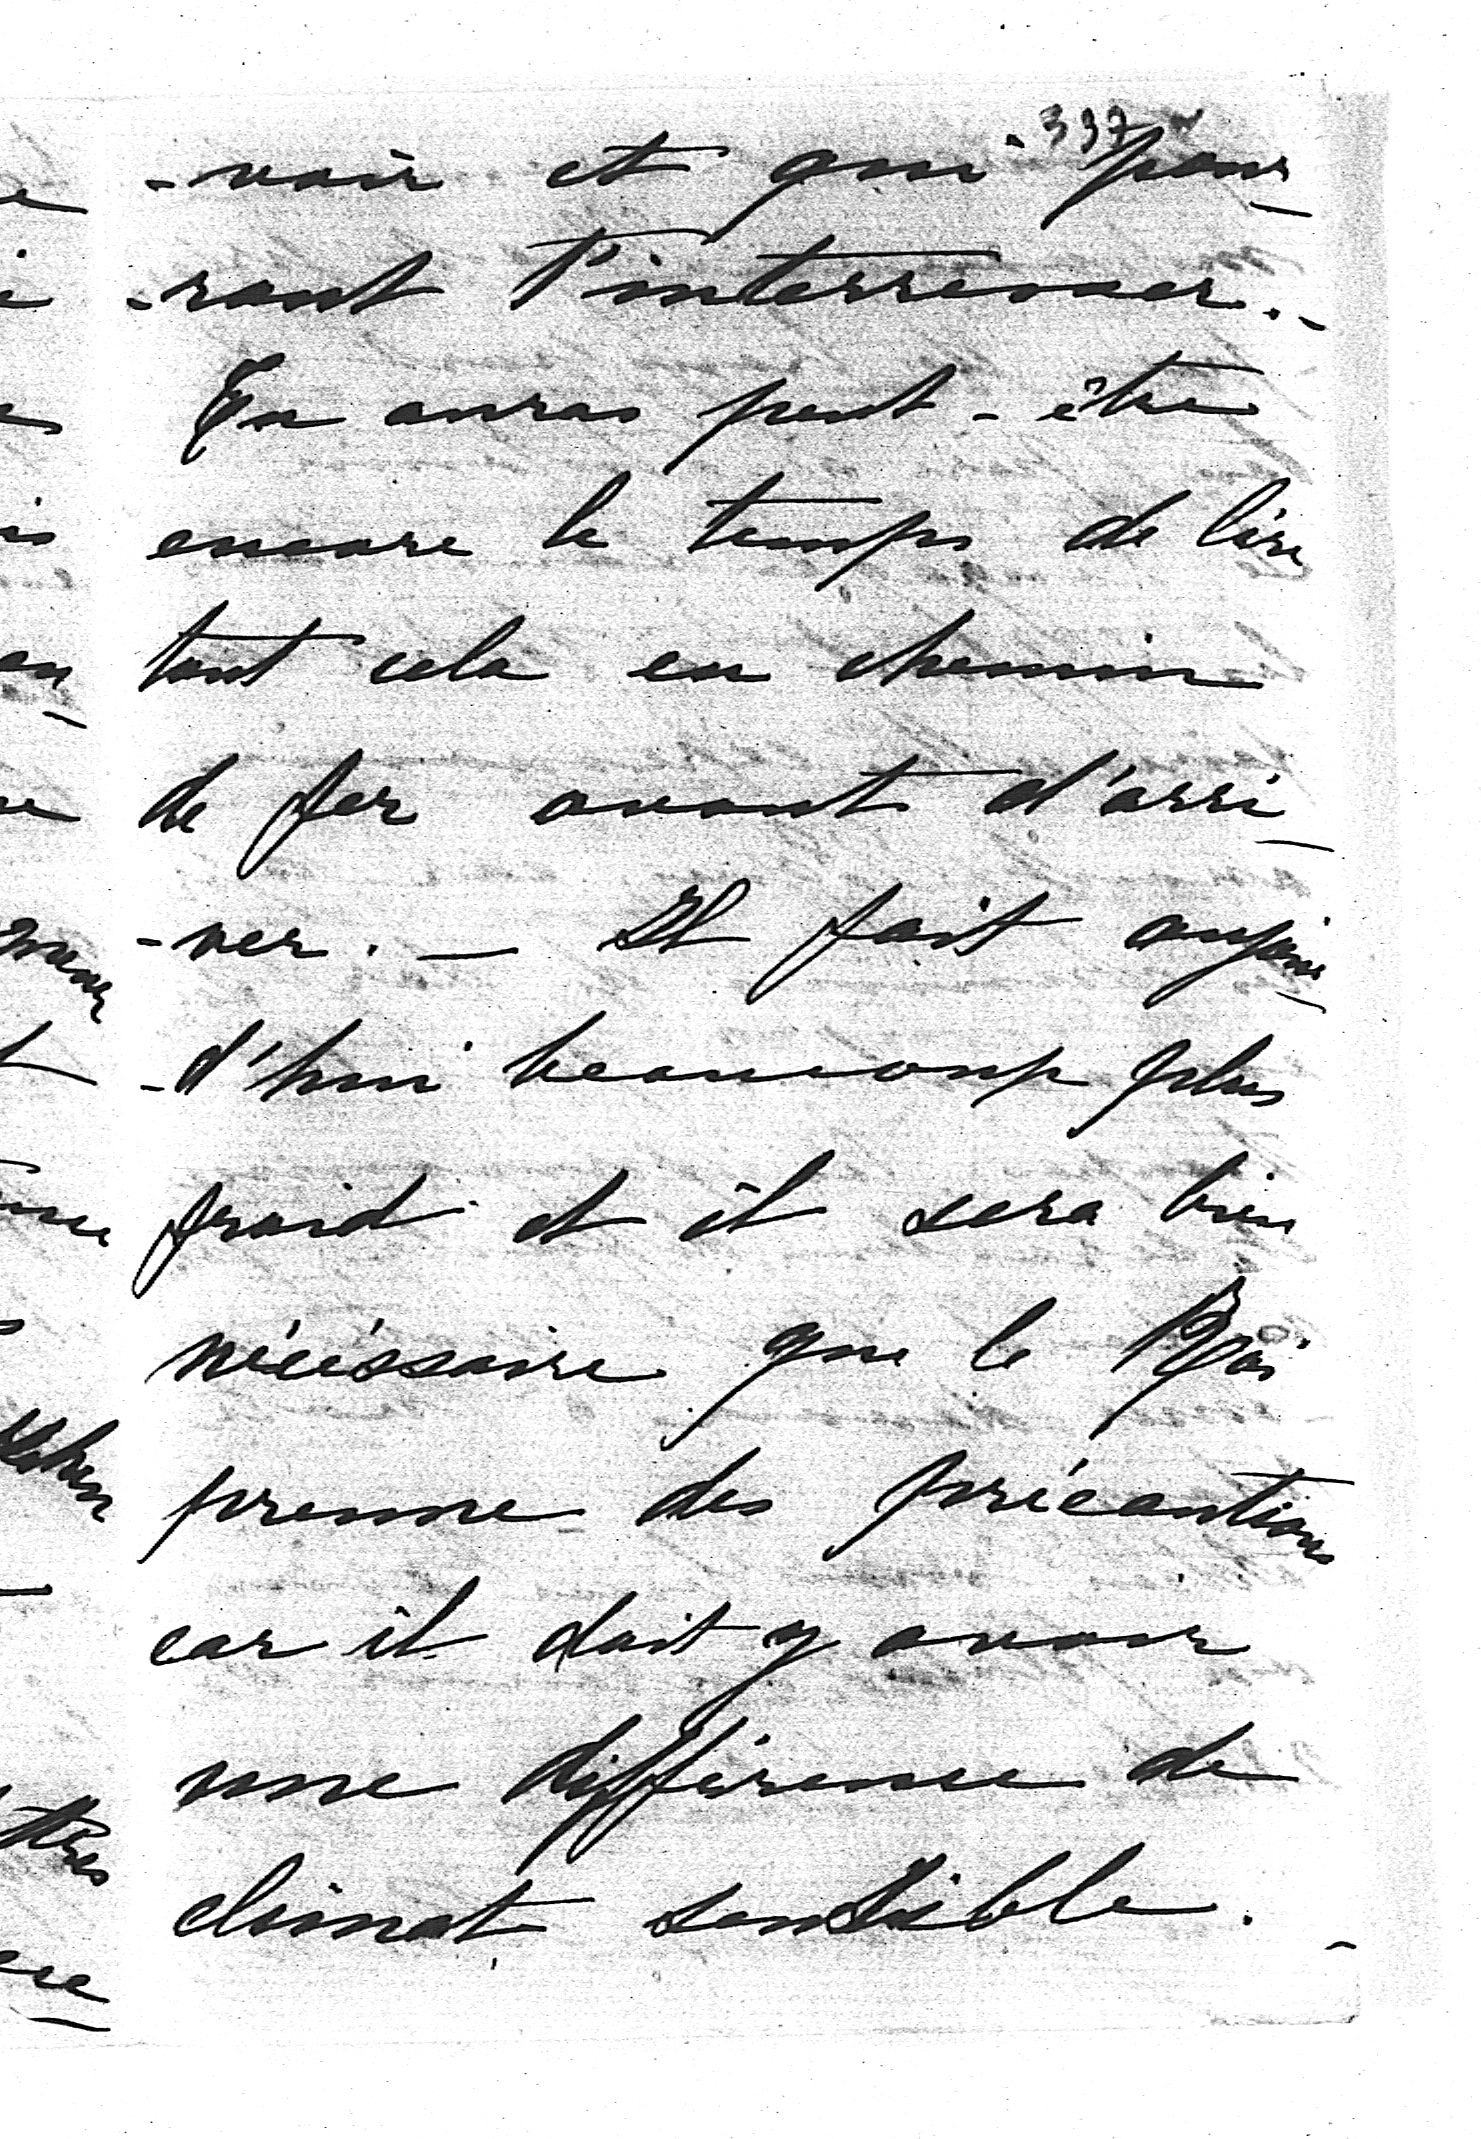 397
-voir et qui pour-
-ront t'intérresser.-
Tu auras peut-être
encore le temps de lire
tout cela en chemin
de fer avant d'arri-
-ver. — Il fait aujour-
-d'hui beaucoup plus
froid et il sera bien
nécéssaire que le Roi
prenne des précautions
car il doit y avoir
une différence de
climat sensible. -